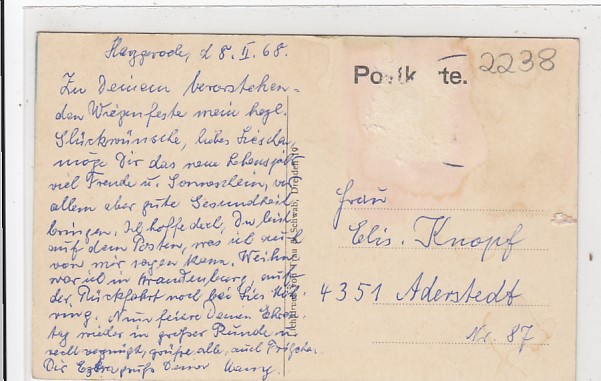 Harzgerode, d 8. II. 68.
Zu Deinem bevorstehen=
den Wiegenfeste mein hzgl.
Glückwünsche, liebes Lieschen,
möge Dir das neue Lebensjahr
viel Freude u. Sonnenschein, vor
allem aber gute Gesundheit
bringen. Ich hoffe doch, Du bist
auf dem Posten, was ich auch
von mir sagen kann. Weihn.
war ich in Brandenburg, auf
der Rückfahrt noch bei
Nun feiere Deinen Ehren-
tag wieder in großer Runde u.
recht vergnügt, grüße alle, auch
Dir
Postk te.
2238
Frau
Elis. Knopf
4351 Aderstedt
Nr. 87
Schwab, Dresden